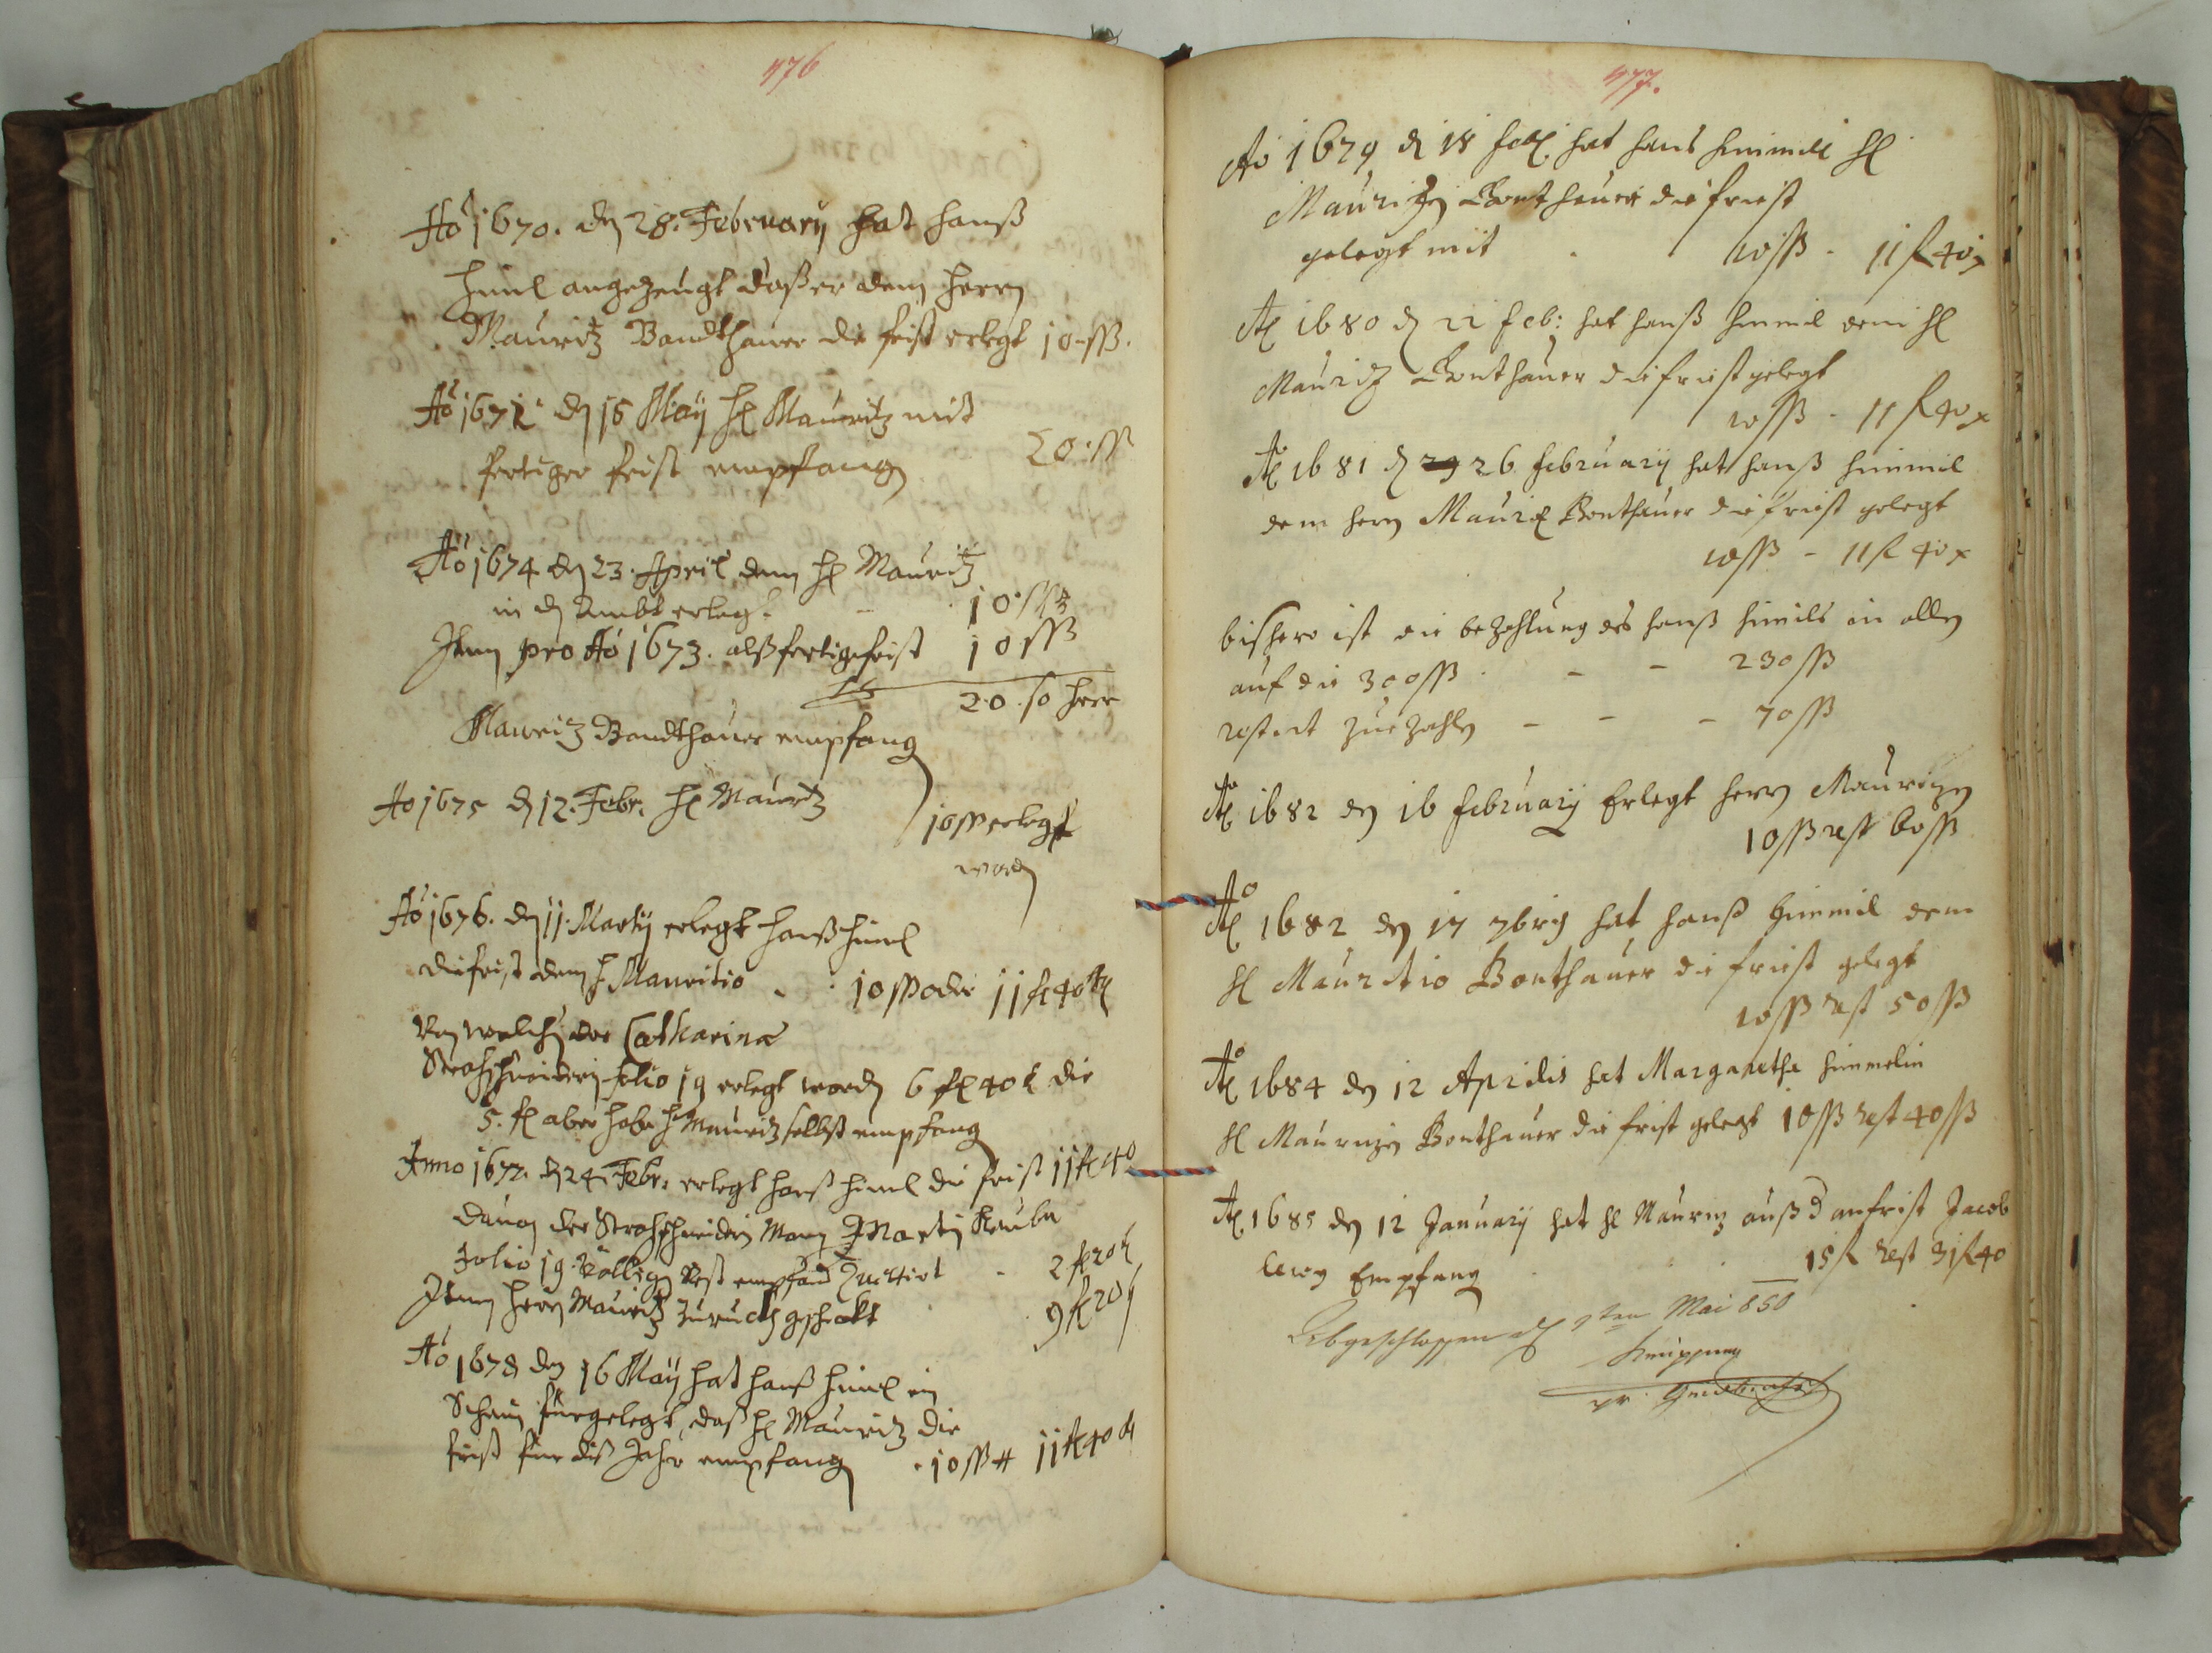 476
Aõ 1670. den 28. February hat Hanß
Himel angezeugt daß er dem Herrn
Mauritz Bandthauer die frist erlegt 10 ßß.
Aõ 1671 den 16 May H Mauritz mit
fertiger frist empfang 20 ßß
Aõ 1674 den 23. April dem H Mauritz
in d Ambt erlegt - 10 ßß
Item pro Aõ 1673. alß fertige frist 10 ßß
20. so Herr
Mauritz Bandthauer empfang
Ao 1675 d 12. Febr. H Mauritz
10 ßß erlegt
word
Aõ 1676. den 11. Marty erlegt Hanß Himel
die frist dem H Mauritio 10 ßß oder 11 fl 40
Von welch der Catharina
Strohschneiderin folio 19 erlegt word 6 fl 40 die
5. fl aber habe H Mauritz selbst empfang
Anno 1677. d 24. Febr. erlegt Hanß Himel die frist 11 fl 40
davon der Strohschneiderin Man Marti
folio 19 völlig Rest Quittirt - 2 fl 20
Item Herrn Mauritz zuruckh geschikt 9 fl 20
Aõ 1678 den 16 May hat Hanß Himel ein
Schein fürgelegt, daß H Mauritz die
frist für diß Jahr empfang 10 ßß 11 fl 40
477.
Aõ 1679 d 18 feb hat Hans Himmel H
Mauritzen Bonthauer die friest
gelegt mit 10 ßß - 11 fl 40 x
Ao 1680 d 22 feb: hat Hanß Himmel dem H
Mauritz Bonthauer die friest gelegt
10 ßß - 11 fl 40 x
Ao 1681 d 29 26 february hat Hanß Himmil
dem Hern Mauritz Bonthauer die friest gelegt
10 ßß - 11 fl 40 x
bishero ist die bezahlung des Hanß Himils in allen
auf die 300 ßß - - 230 ßß
restirt zue zahlen - - - 70 ßß
Ao 1682 den 16 february Erlegt Herrn Mauritzen
10 ßß rest 60 ßß
Ao 1682 den 17 7bris hat Hanß Himmil dem
H Mauritio Bonthauer die friest gelegt
10 ßß rest 50 ßß
Ao 1684 den 12 Aprilis hat Margaretha Himmelin
H Mauritzen Bonthauer die frist gelegt 10 ßß rest 40 ßß
Ao 1685 den 12 January hat H Mauritz auß d anfrist Jacob
Empfang 15 fl rest 31 fl 40
Abgeschlossen d 9ten Mai 850